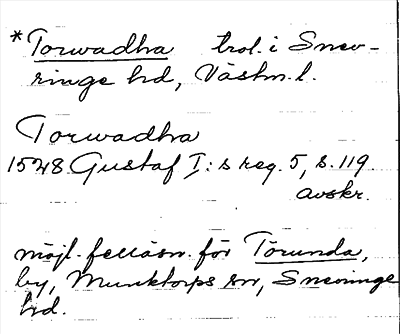 *Torwadha trol. i Snev-
ringe hd, Västm. l.
Torwadha
1548 Gustaf I:s reg. 5, s. 119.
avskr.
möjl. felläsn. för Törunda,
by, Munktorps sn, Snevringe
hd.